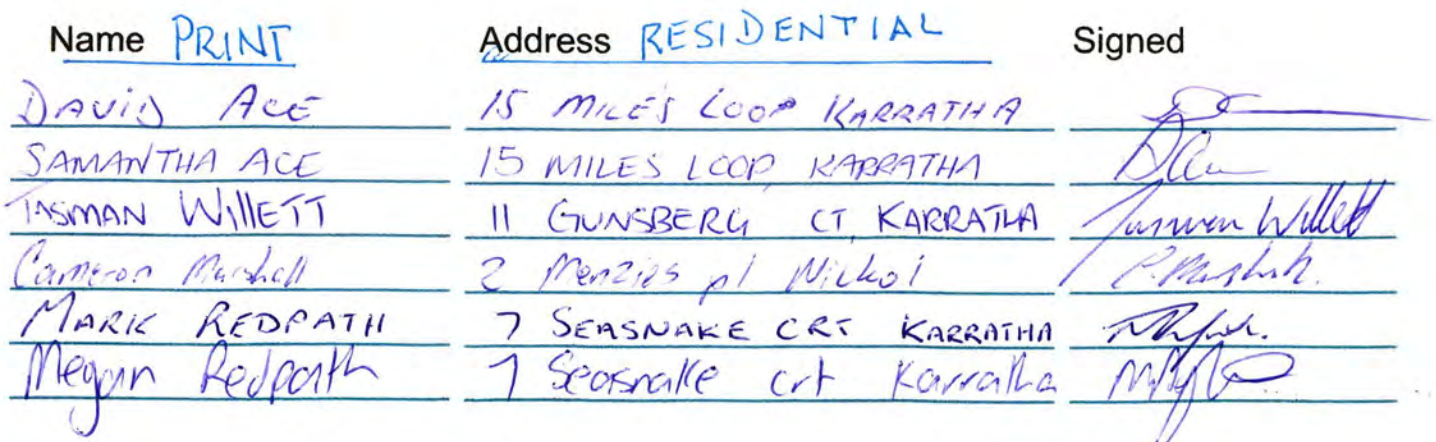 Name PRINT Address RESIDENTIAL Signed
DAVID ACE 15 MILES LOOP KARRATHA
SAMANTHA ACE 15 MILES LOOP, KARRATHA
TASMAN WILLETT 11 GUNSBERG CT, KARRATHA Tasman Willett
Cameron Marshall 2 Menzies pl Nickol
MARK REDPATH 7 SEASNAKE CRT KARRATHA
Megan Redpath 7 Seasnake crt Karratha